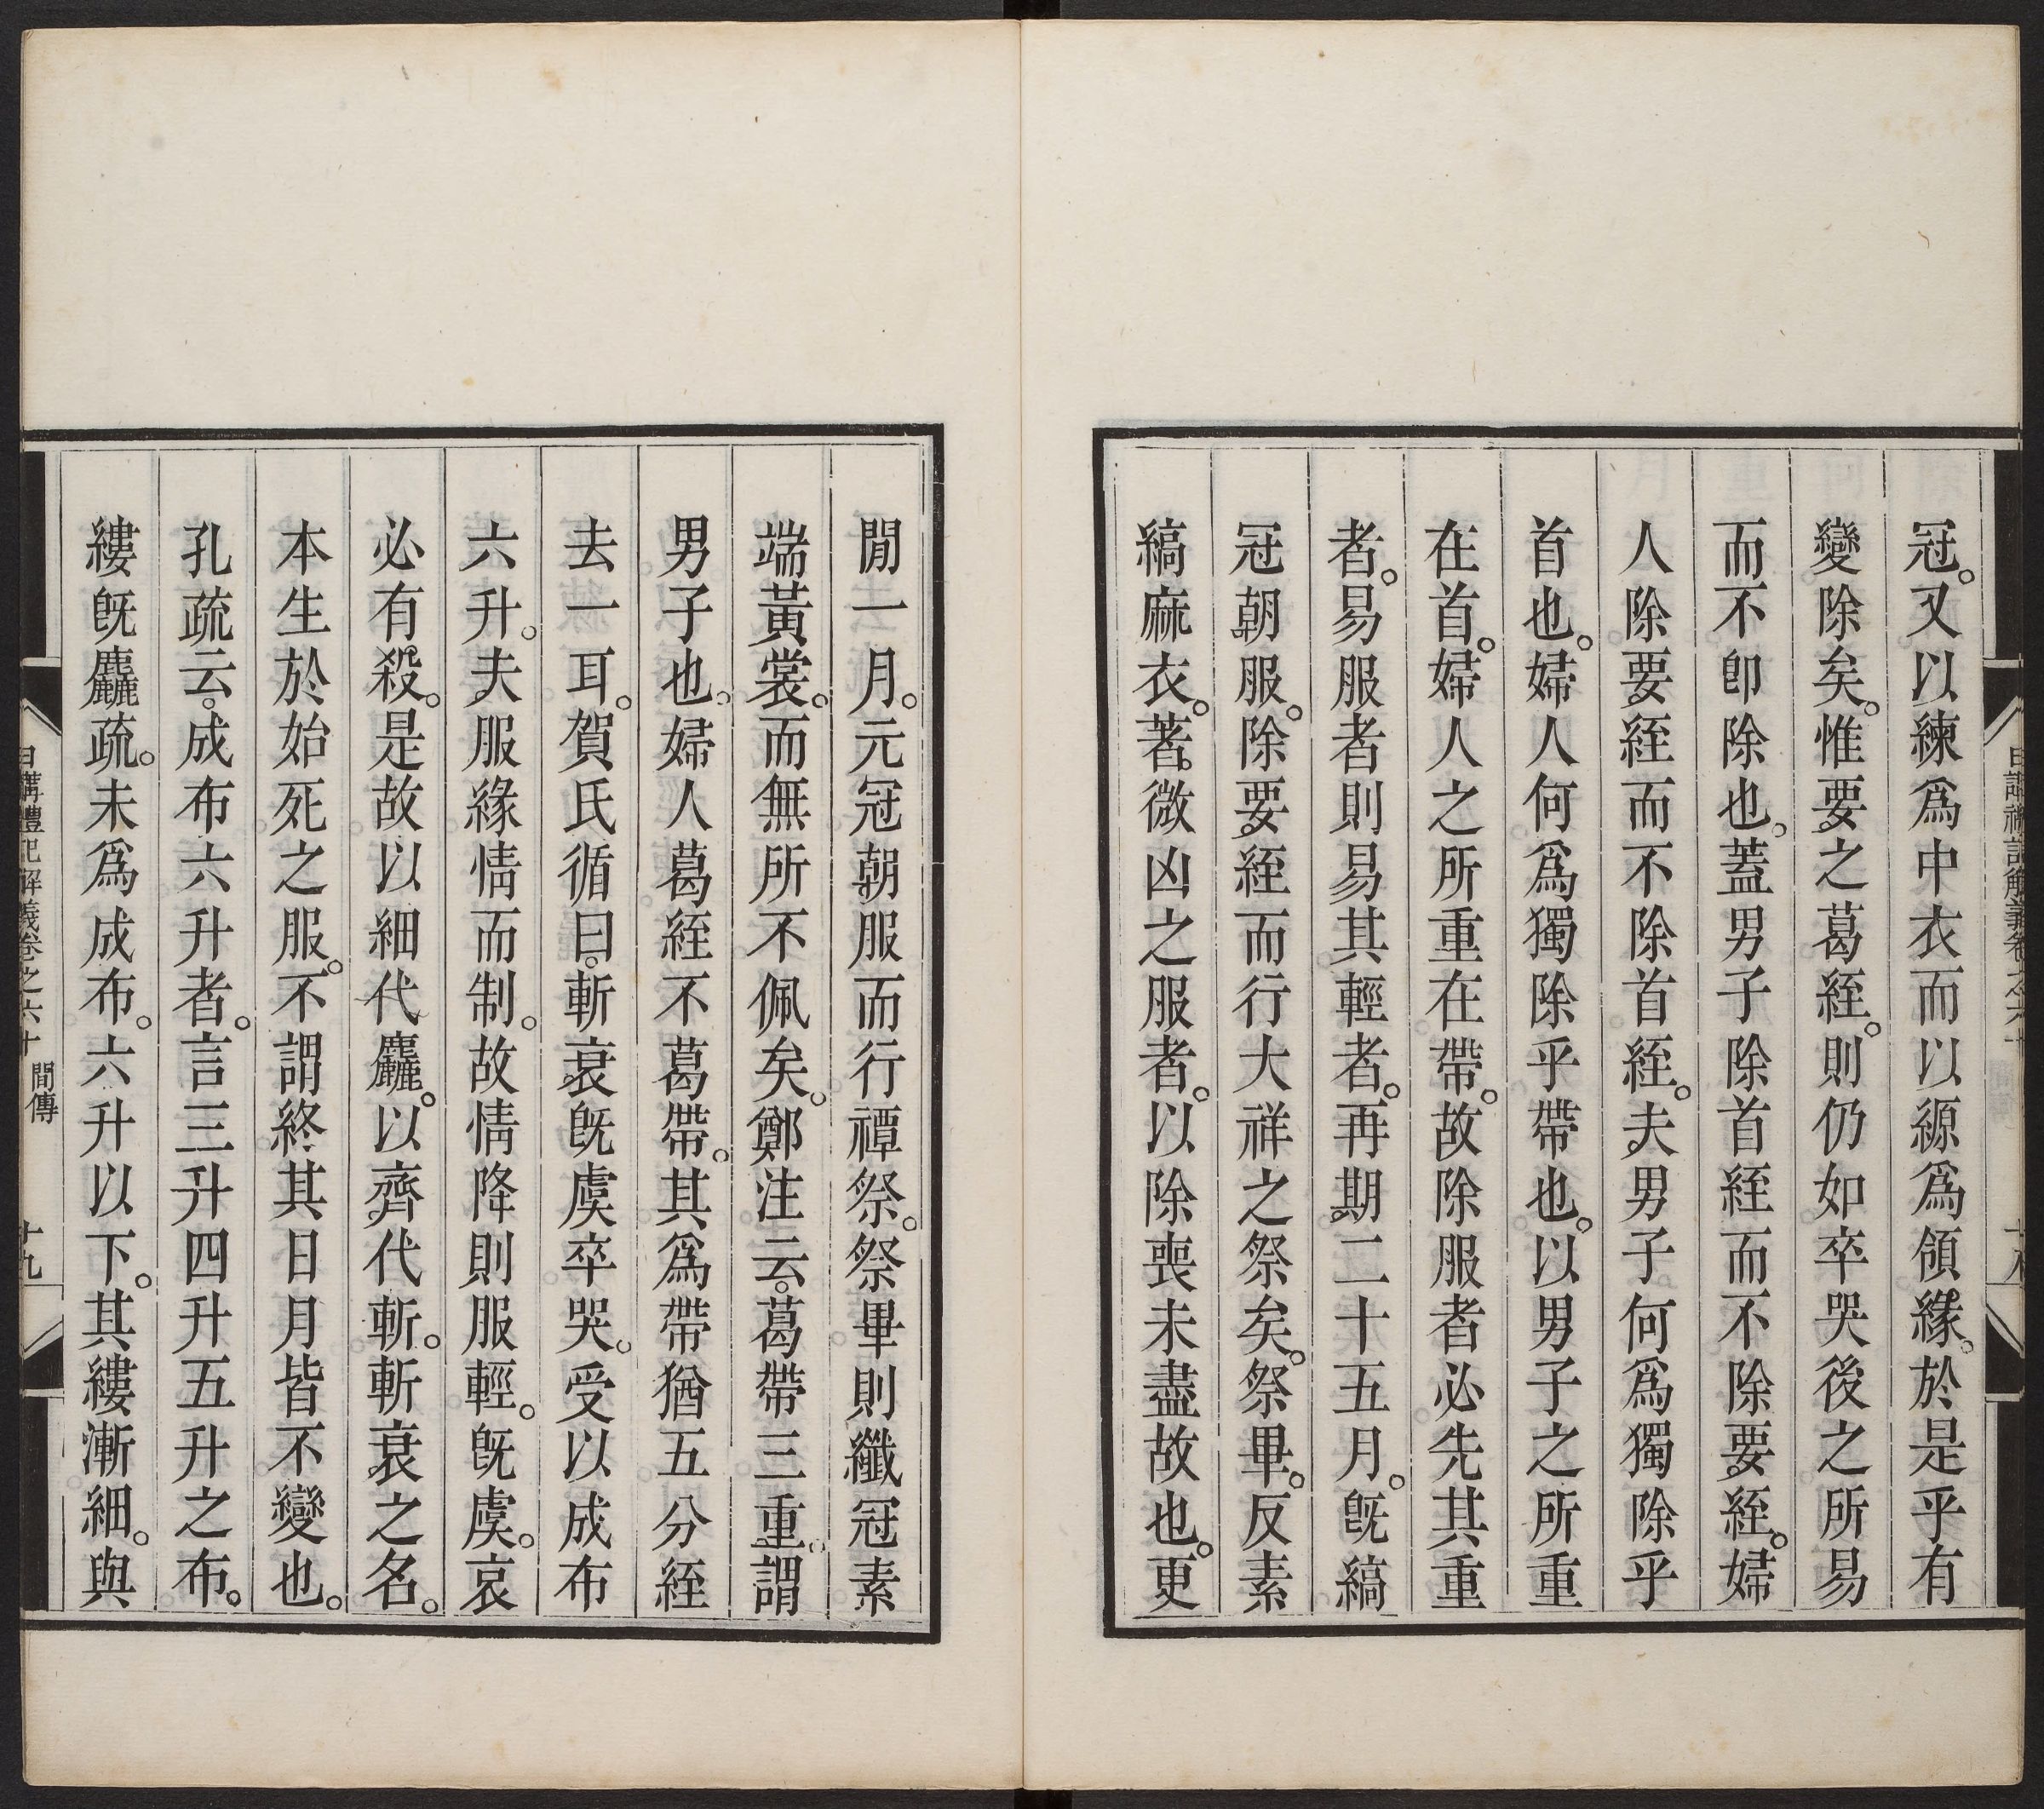 冠。又以練爲中衣而以縓爲領緣。於是乎有
變除矣。惟要之葛絰。則仍如卒哭後之所易
而不卽除也。蓋男子除首絰而不除要絰。婦
人除要絰而不除首絰。夫男子何爲獨除乎
首也。婦人何爲獨除乎帶也。以男子之所重
在首。婦人之所重在帶。故除服者必先其重
者。易服者則易其輕者。再期二十五月。旣縞
冠朝服。除要絰而行大祥之祭矣。祭畢。反素
縞麻衣。著微凶之服者。以除喪未盡故也。更
閒一月。元冠朝服而行禫祭。祭畢則纖冠素
端黃裳。而無所不佩矣。鄭注云。葛帶三重。謂
男子也。婦人葛絰不葛帶。其爲帶猶五分絰
去一耳。賀氏循曰。斬衰旣虞卒哭。受以成布
六升。夫服緣情而制。故情降則服輕。旣虞。哀
必有殺。是故以細代麤。以齊代斬。斬衰之名。
本生於始死之服。不謂終其日月皆不變也。
孔疏云。成布六升者。言三升四升五升之布。
縷旣麤疏。未爲成布。六升以下。其縷漸細。與
日講禮記解義卷之六十 間傳 十九